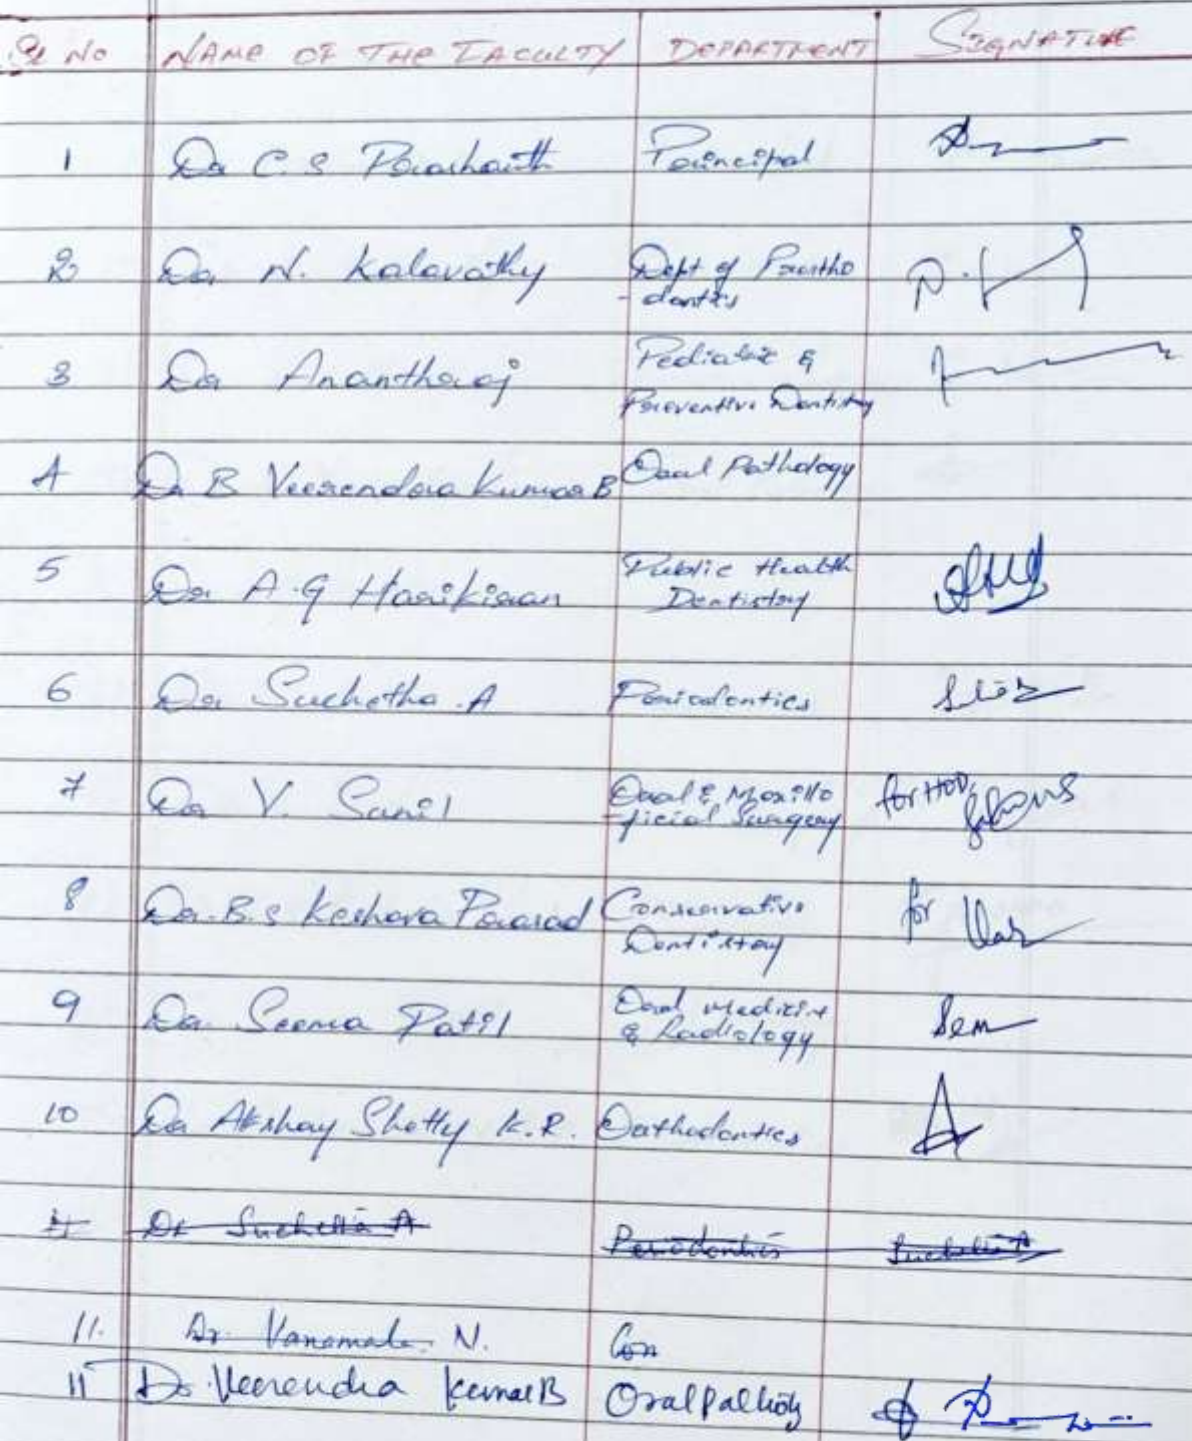 Sl No NAME OF THE FACULTY DEPARTMENT SIGNATURE
1 Dr C. S Prashanth Principal
2 Dr N. Kalavathy Dept of Prostho
-dontics
3 Dr Anantharaj Pediatric &
Preventive Dentistry
4 Dr B Veerendra Kumar B Oral Pathology
5 Dr A.G Harikiran Public Health
Dentistry
6 Dr Suchetha A Periodontics
7 Dr V. Sunil Oral & Maxillo for HOD,
-ficial Surgery
8 Dr. B.S Keshava Prasad Conservative for
Dentistry
9 Dr. Seema Patil Oral Medicine
& Radiology
10 Dr Akshay Shetty K.R. Orthodontics
11 Dr Suchetha A Periodontics Suchetha A
11. Dr. Vanamala N. Con
11 Dr. Veerendra Kumar B Oral Pathology